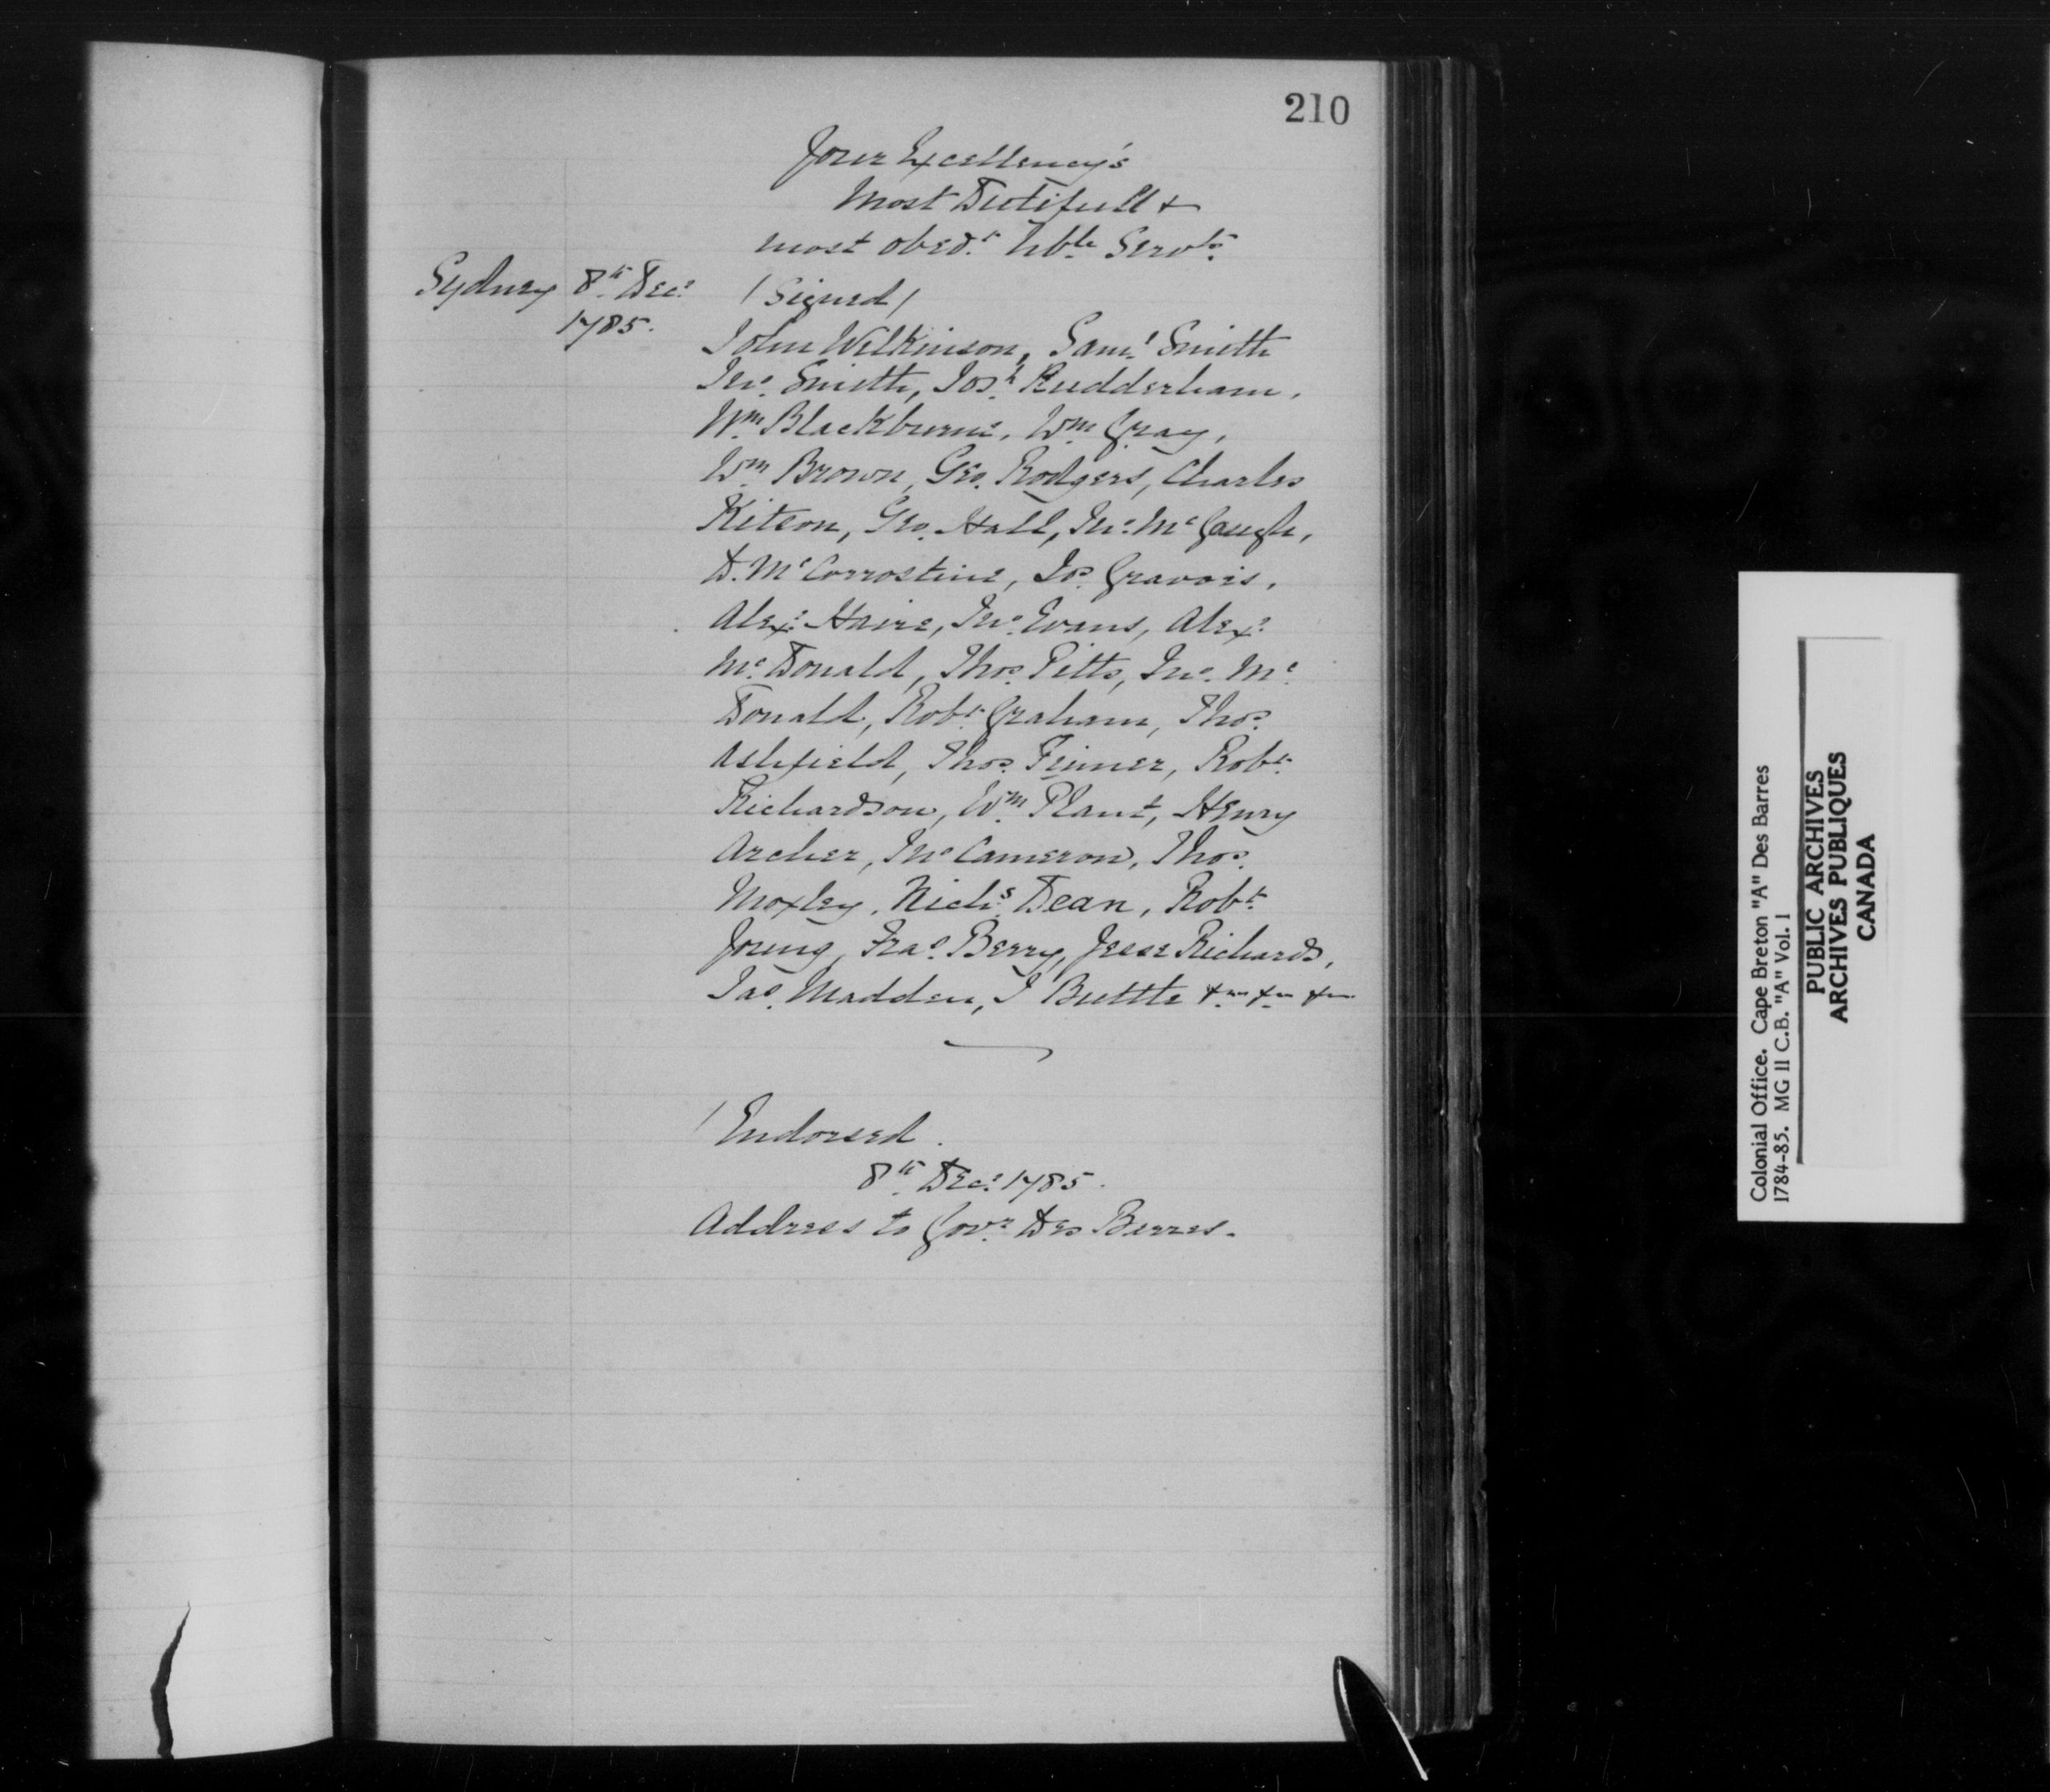 210
Your Excellency's
Most Dutifull &
most obedt. hble Servts.
Sydney 8th Decr.
1785.
/Signed/
John Wilkinson, Saml. Smith
Jno. Smith, Josh. Rudderham,
Wm. Blackburne, Wm. Gray,
Wm. Brown, Geo. Rodgers, Charles
Kitson, Geo. Hall, Jno. Mc Gaugh,
D. Mc Corrostine, Jos. Gravois,
Alexr. Haire, Jno. Evans, Alexr.
Mc. Donald, Thos. Pitts, Jno. Mc.
Donald, Robt. Graham, Thos.
Ashfield, Thos. Finner, Robt.
Richardson, Wm. Plant, Henry
Archer, Jno Cameron, Thos.
Moxley, Nichs. Dean, Robt.
Young, Fras. Berry, Jesse Richards,
Jas. Madden, J Buttle &c &c &c
/Endorsed.
8th Decr. 1785.
Address to Govr. Des Barres.
Colonial Office. Cape Breton "A" Des Barres
1784-85. MG 11 C.B. "A" Vol. 1
PUBLIC ARCHIVES
ARCHIVES PUBLIQUES
CANADA